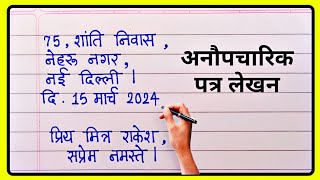 75, शांति निवास,
नेहरू नगर,
नई दिल्ली।
दि. 15 मार्च 2024.
प्रिय मित्र राकेश,
सप्रेम नमस्ते।
अनौपचारिक
पत्र लेखन